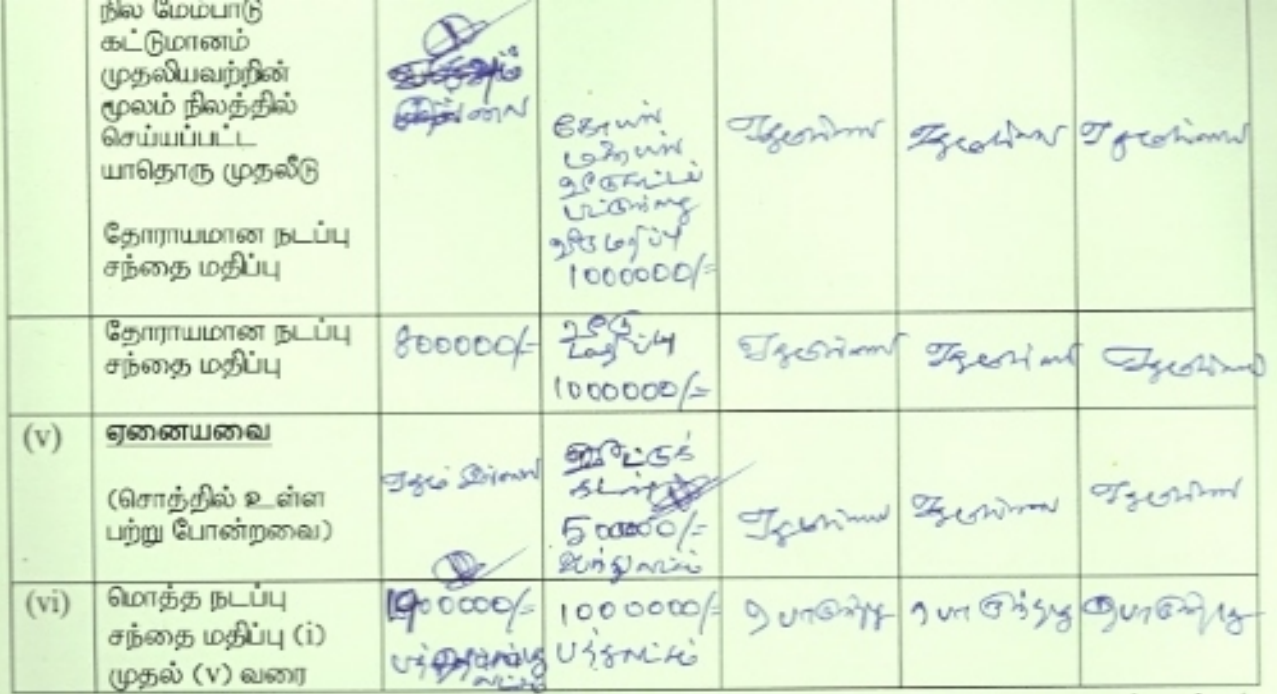 நில மேம்பாடு
கட்டுமானம்
முதலியவற்றின்
மூலம் நிலத்தில்
செய்யப்பட்ட
யாதொரு முதலீடு
தோராயமான நடப்பு
சந்தை மதிப்பு
ஏதுமில்லை ஏதுமில்லை ஏதுமில்லை
1000000/=
தோராயமான நடப்பு
சந்தை மதிப்பு
800000/=
வீடு
மதிப்பு
1000000/=
ஏதுமில்லை ஏதுமில்லை ஏதுமில்லை
(v) ஏனையவை
(சொத்தில் உள்ள
பற்று போன்றவை)
ஏதும் இல்லை
500000/=
ஐந்து லட்சம்
ஏதுமில்லை ஏதுமில்லை ஏதுமில்லை
(vi) மொத்த நடப்பு
சந்தை மதிப்பு (i)
முதல் (v) வரை
1000000/=
பத்துலட்சம்
பொருந்தாது பொருந்தாது பொருந்தாது